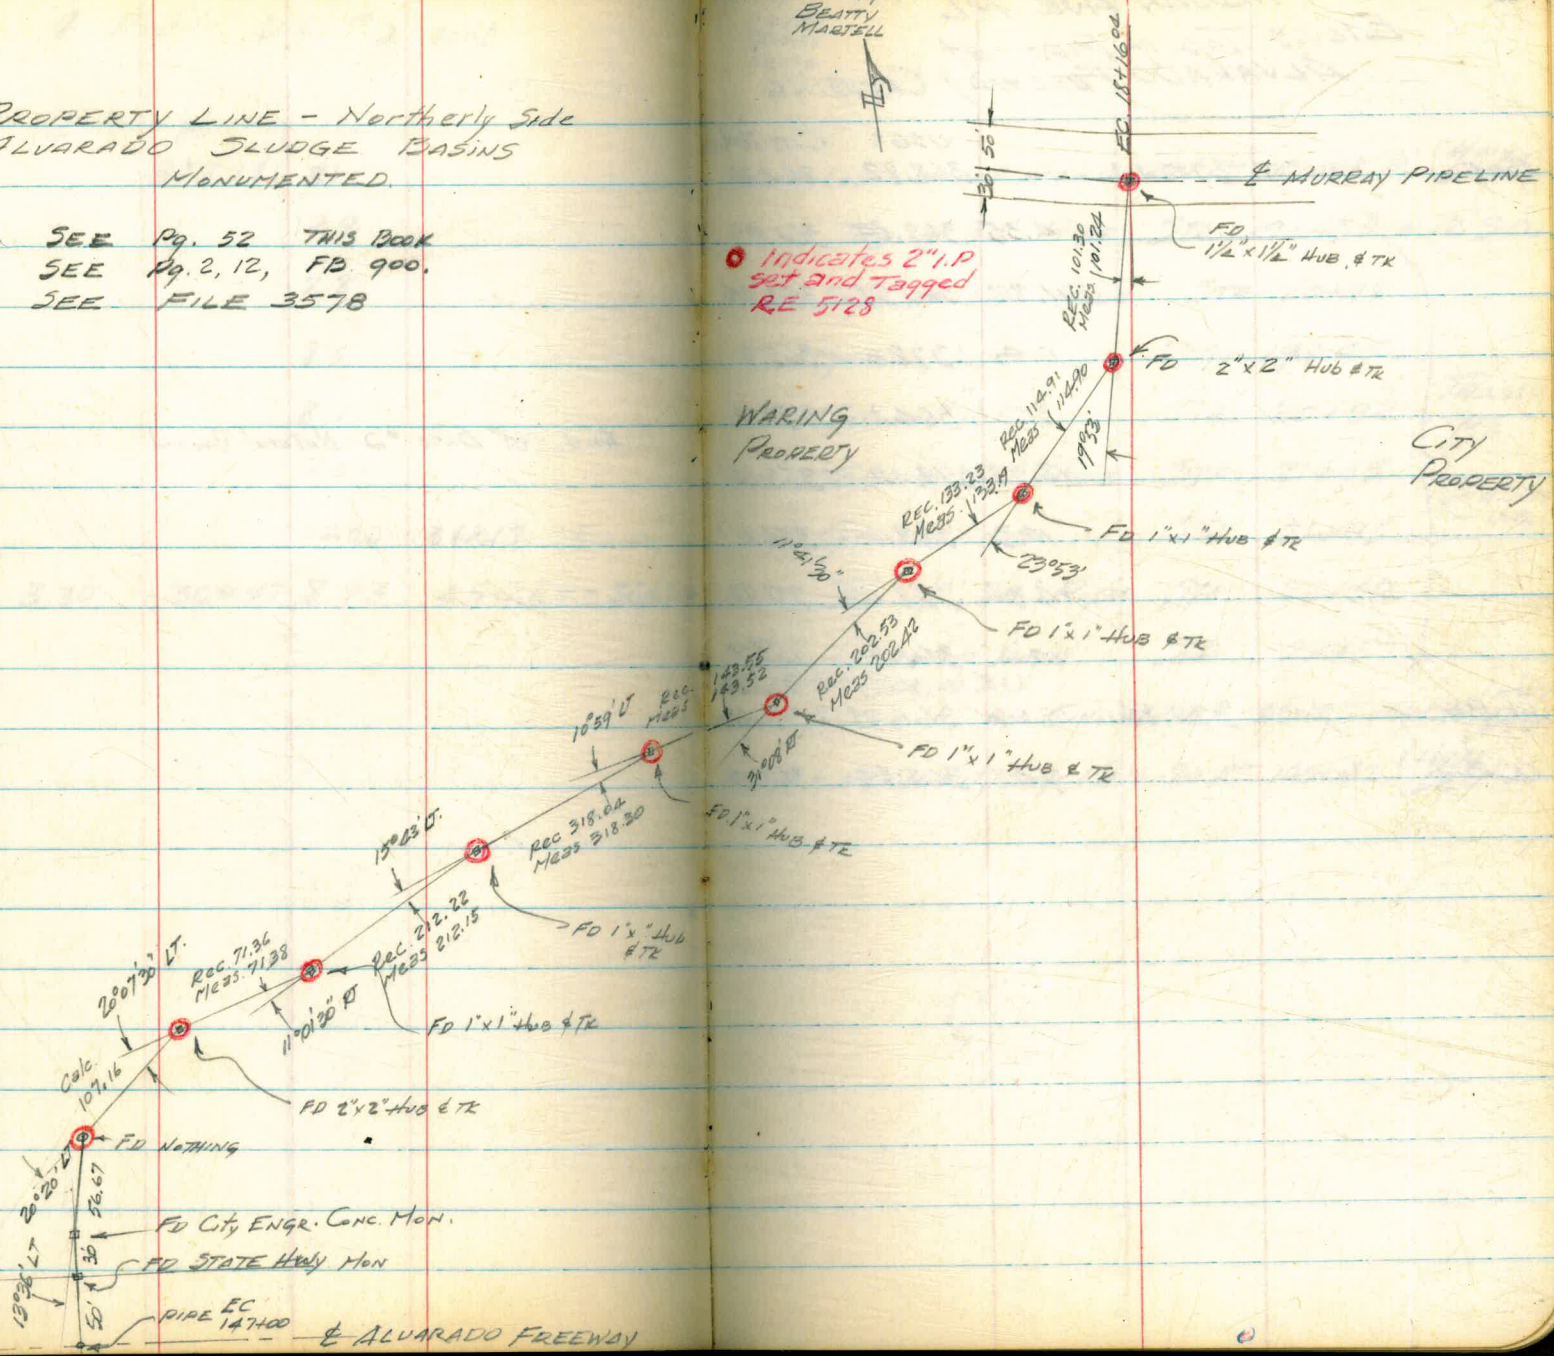 PROPERTY LINE - Northerly Side
ALVARADO SLUDGE BASINS
MONUMENTED.
SEE Pg. 52 THIS BOOK
SEE Pg. 2, 12, FB 900.
SEE FILE 3578
BEATTY
MARTELL
EC 18+16.04
50'
30'
℄ MURRAY PIPELINE
FD.
1½"x1½" HUB & TK
Indicates 2" I.P
set and Tagged
RE 5128
REC. 101.30
Meas. 101.24
FD 2"x2" Hub & TK
WARING
PROPERTY
CITY
PROPERTY
Rec 114.91
Meas 114.90
19°33'
REC. 133.23
Meas. 133.19
FD 1"x1" HUB & TK
23°53'
FD 1"x1" HUB & TK
Rec. 202.53
Meas 202.42
Rec. 143.55
Meas 143.52
10°59' LT
31°08' RT
FD 1"x1" HUB & TK
Rec 318.04
Meas 318.30
FD. 1"x1" HUB & TK
15°43' LT.
Rec. 212.22
Meas 212.15
FD 1"x1" Hub
& TK
20°07'30" LT.
Rec. 71.36
Meas. 71.38
11°01'30" RT
FD 1"x1" HUB & TK
Calc.
107.16
FD 2"x2" HUB & TK
FD NOTHING
20°20' LT
56.67
FD City ENGR. CONC. MON.
36'
FD STATE Hwy MON
13°36' LT
50'
PIPE EC
147+00
℄ ALVARADO FREEWAY